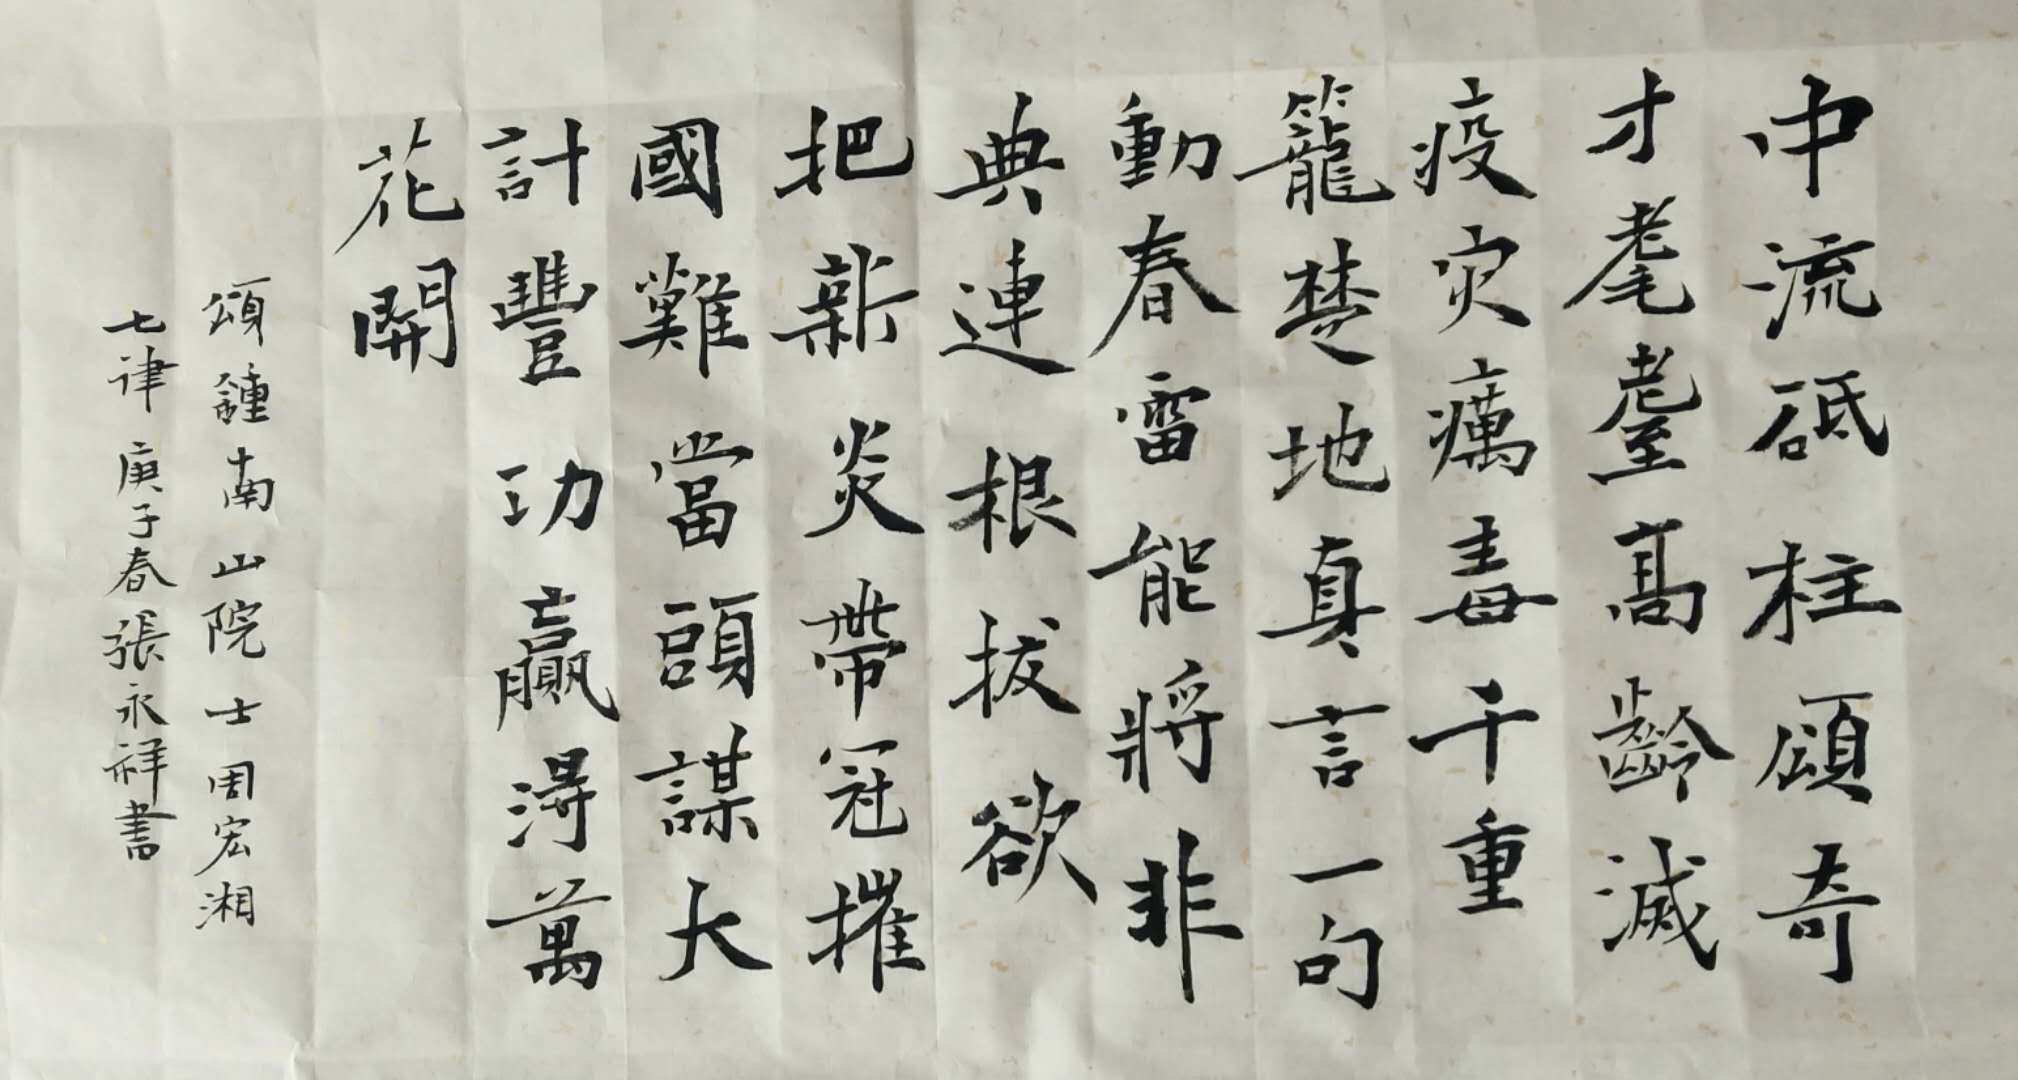 中流砥柱頌奇
才耄耋髙齡滅
疫灾癘毒千重
籠楚地真言一句
動春雷能將非
典連根拔欲
把新炎帶冠摧
國難當頭謀大
計豐功贏得萬
花開
頌鍾南山院士周宏湘
七律庚子春張永祥書